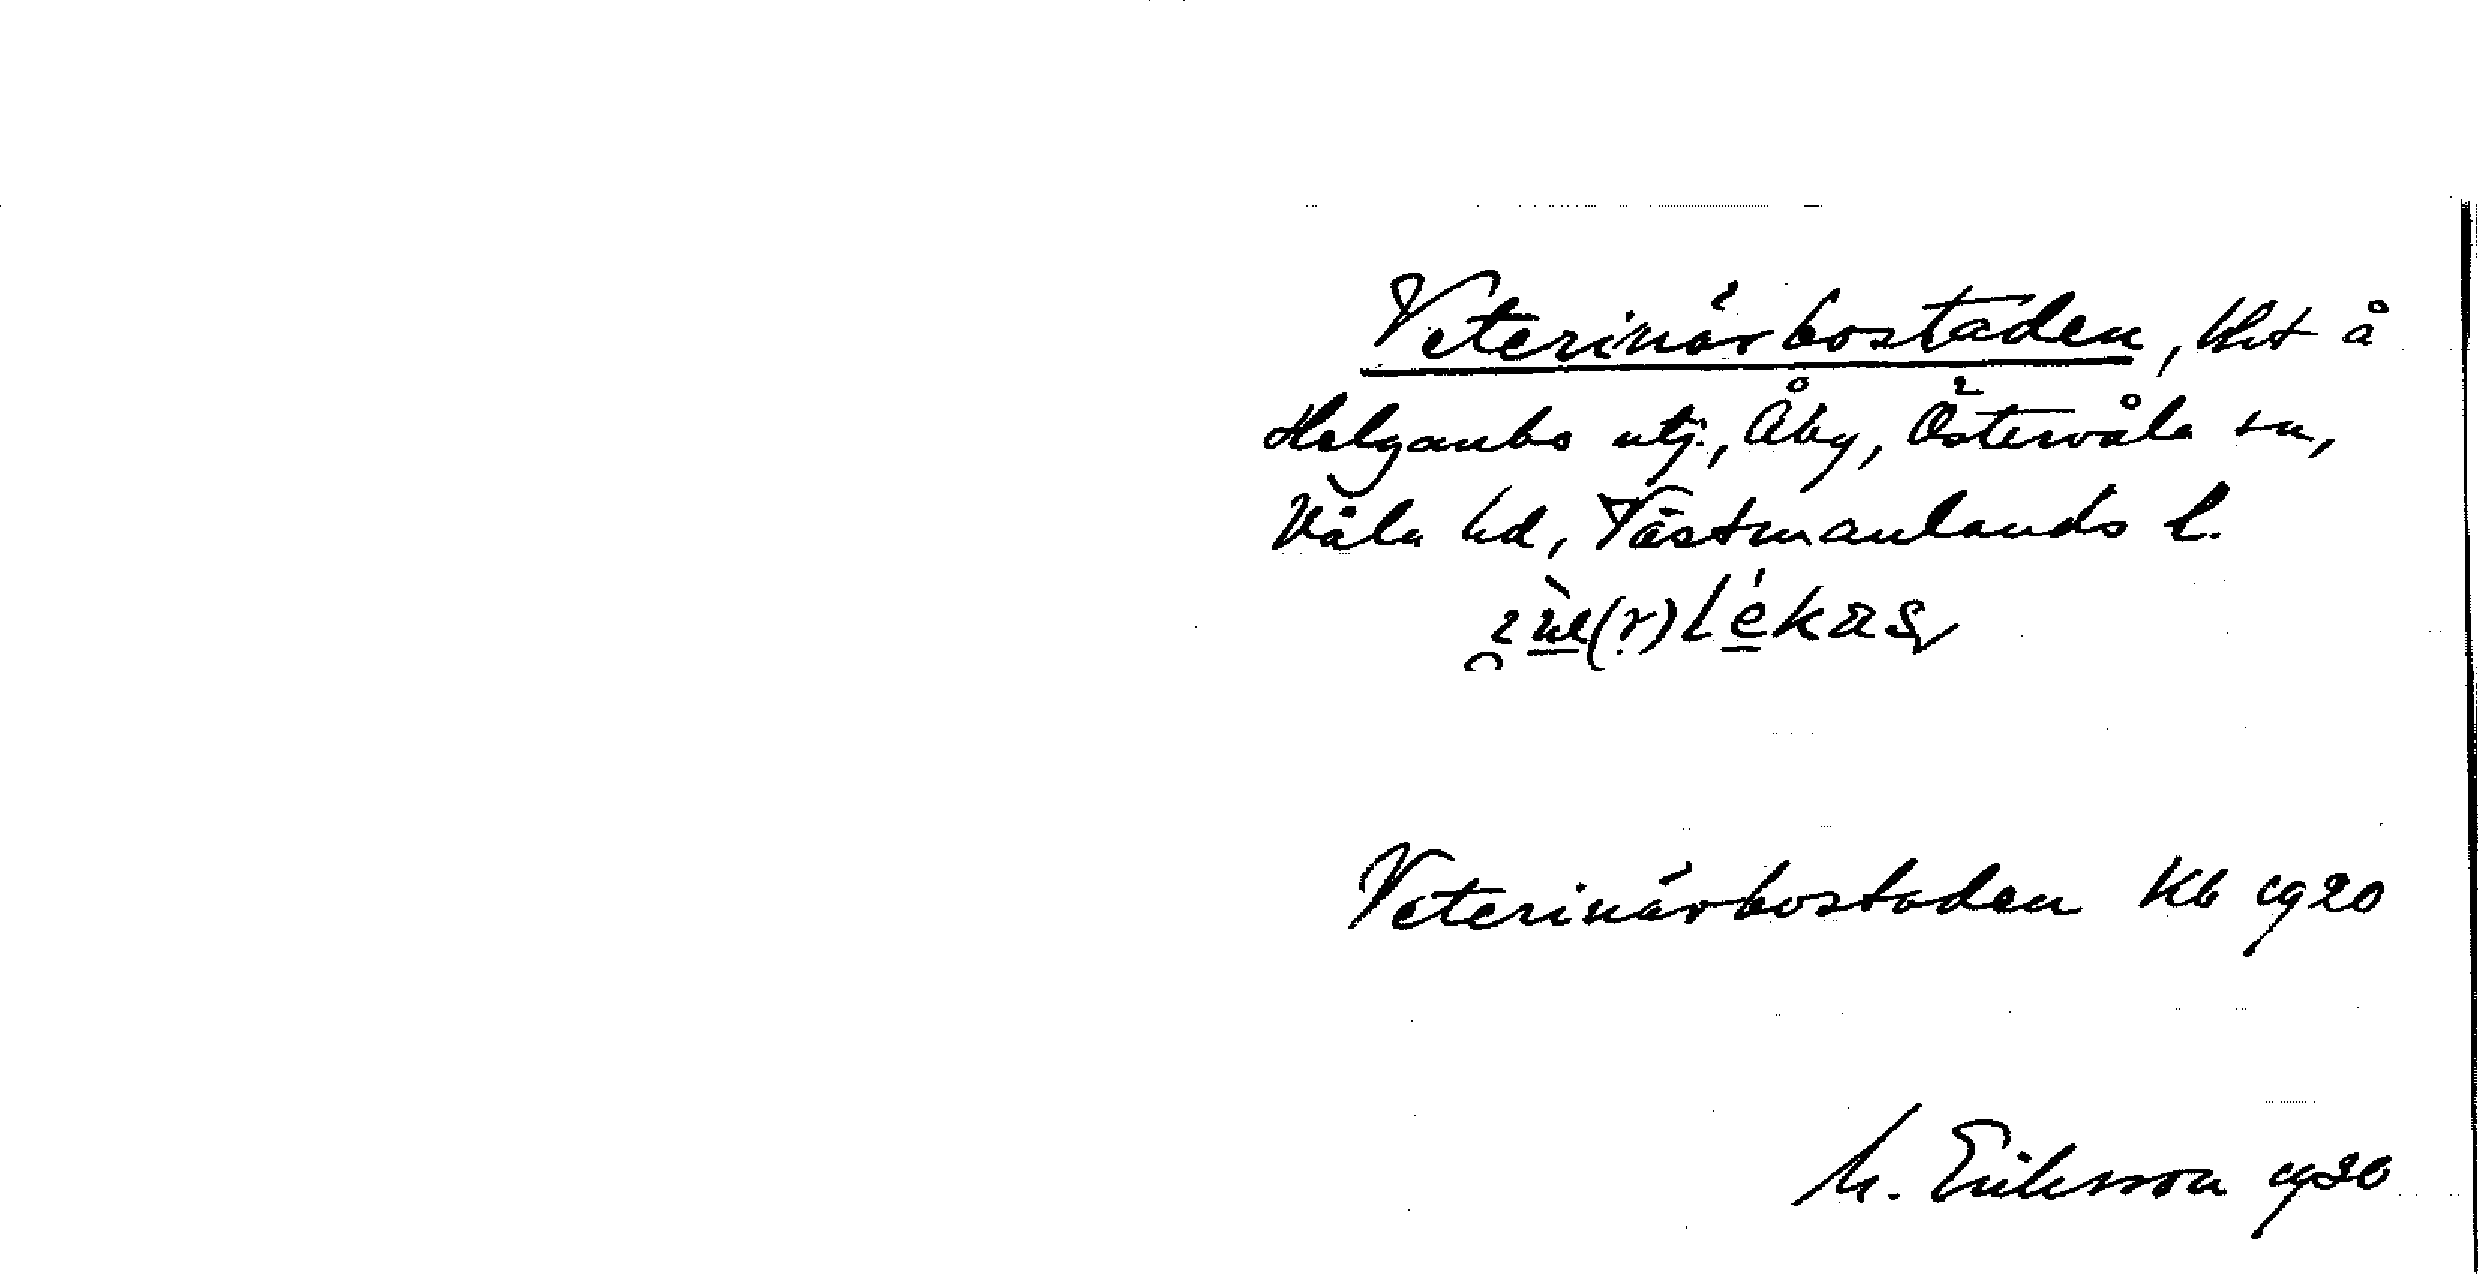 Veterinärbostaden, lht å
Helganbo utj., Åby, Östervåla sn,
Våla hd, Västmanlands l.
Veterinärbostaden Kb 1920
M. Eriksson 1930